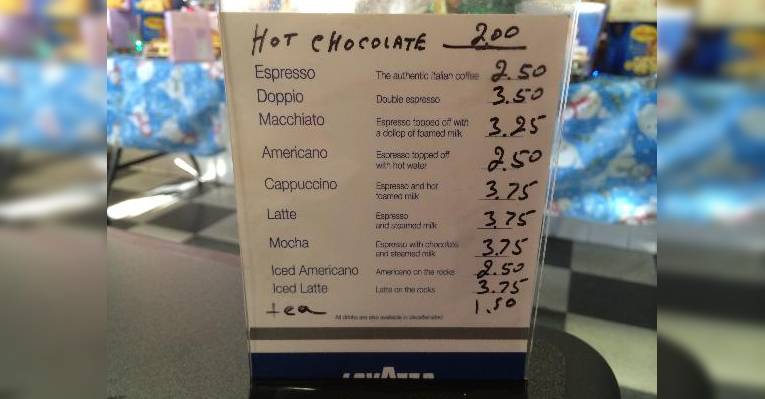 HOT CHOCOLATE 2.00
Espresso The authentic Italian coffee 2.50
Doppio Double espresso 3.50
Macchiato Espresso topped off with a dollop of foamed milk 3.25
Americano Espresso topped off with hot water 2.50
Cappuccino Espresso and hot foamed milk 3.75
Latte Espresso and steamed milk 3.75
Mocha Espresso with chocolate and steamed milk 3.75
Iced Americano Americano on the rocks 2.50
Iced Latte Latte on the rocks 3.75
tea 1.50
All drinks are also available in decaffeinated
LAVAZZA